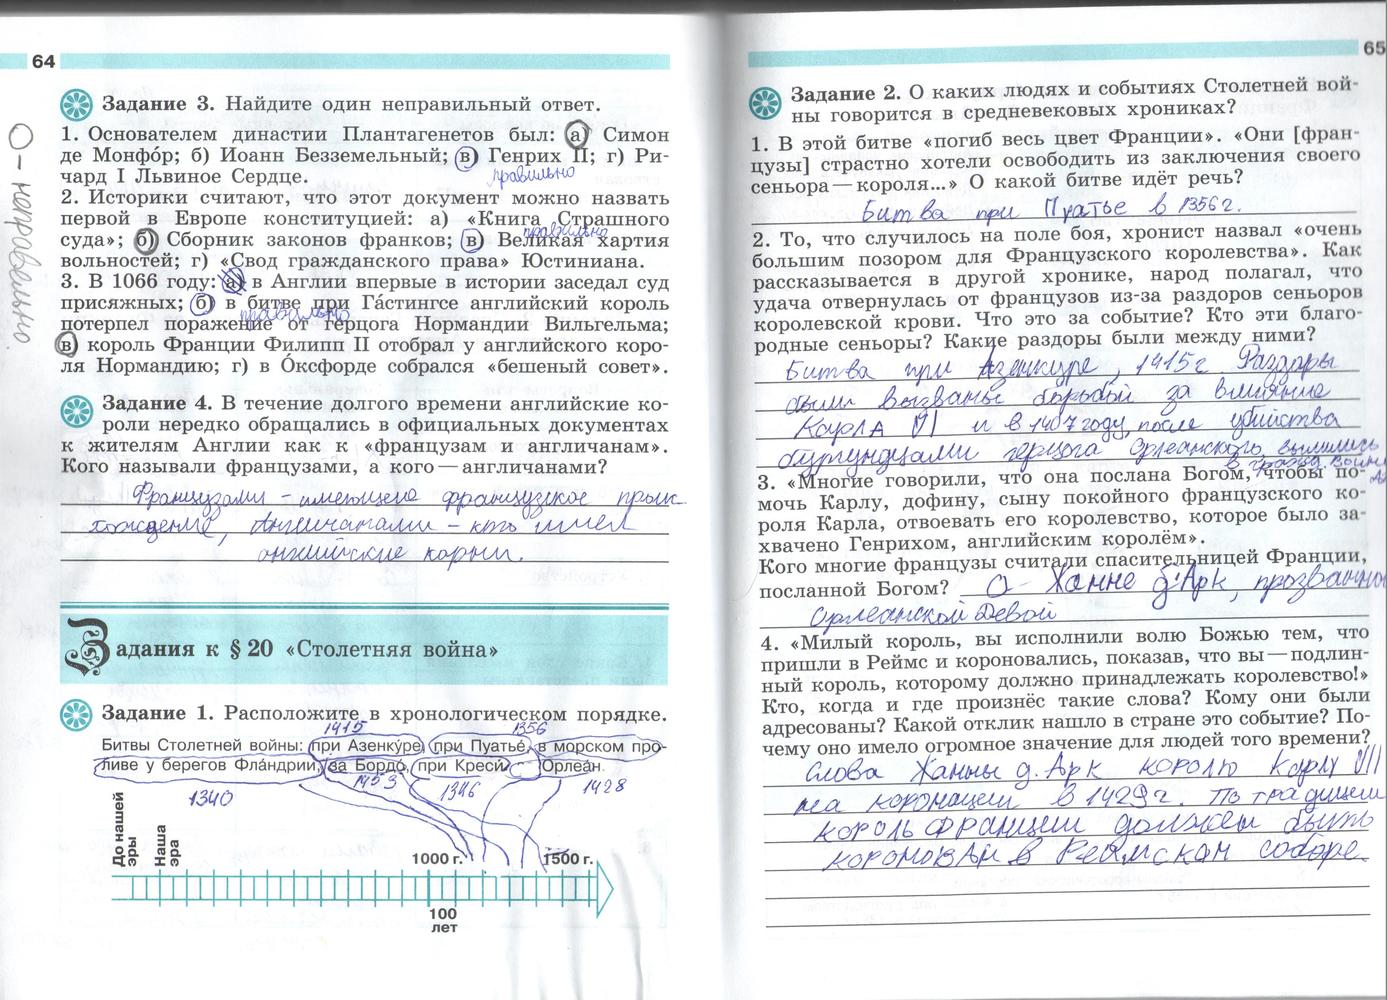 64
Задание 3. Найдите один неправильный ответ.
1. Основателем династии Плантагенетов был: а) Симон
де Монфо́р; б) Иоанн Безземельный; в) Генрих II; г) Ри-
чард I Львиное Сердце.
правильно
2. Историки считают, что этот документ можно назвать
первой в Европе конституцией: а) «Книга Страшного
правильно
суда»; б) Сборник законов франков; в) Великая хартия
вольностей; г) «Свод гражданского права» Юстиниана.
3. В 1066 году: а) в Англии впервые в истории заседал суд
присяжных; б) в битве при Га́стингсе английский король
правильно
потерпел поражение от герцога Нормандии Вильгельма;
в) король Франции Филипп II отобрал у английского коро-
ля Нормандию; г) в О́ксфорде собрался «бешеный совет».
О – неправильно
Задание 4. В течение долгого времени английские ко-
роли нередко обращались в официальных документах
к жителям Англии как к «французам и англичанам».
Кого называли французами, а кого — англичанами?
Французами – имеющие французское проис
хождение, Англичанами – кто имел
английские корни.
Задания к § 20 «Столетняя война»
Задание 1. Расположите в хронологическом порядке.
1415 1356
Битвы Столетней войны: при Азенку́ре, при Пуатье́, в морском про-
ливе у берегов Фла́ндрии, за Бордо́, при Креси́ Орлеа́н.
1340 1453 1346 1428
До нашей эры
Наша эра
1000 г. 1500 г.
100
лет
65
Задание 2. О каких людях и событиях Столетней вой-
ны говорится в средневековых хрониках?
1. В этой битве «погиб весь цвет Франции». «Они [фран-
цузы] страстно хотели освободить из заключения своего
сеньора — короля...» О какой битве идёт речь?
Битва при Пуатье в 1356 г.
2. То, что случилось на поле боя, хронист назвал «очень
большим позором для Французского королевства». Как
рассказывается в другой хронике, народ полагал, что
удача отвернулась от французов из-за раздоров сеньоров
королевской крови. Что это за событие? Кто эти благо-
родные сеньоры? Какие раздоры были между ними?
Битва при Азенкуре, 1415 г. Раздоры
были вызваны борьбой за влияние
Карла VI и в 1407 году, после убийства
бургундцами герцога Орлеанского, вылились
в гражд. войны
3. «Многие говорили, что она послана Богом, чтобы по-
мочь Карлу, дофину, сыну покойного французского ко-
роля Карла, отвоевать его королевство, которое было за-
хвачено Генрихом, английским королём».
Кого многие французы считали спасительницей Франции,
посланной Богом? О Жанне д'Арк, прозванной
Орлеанской Девой
4. «Милый король, вы исполнили волю Божью тем, что
пришли в Реймс и короновались, показав, что вы — подлин-
ный король, которому должно принадлежать королевство!»
Кто, когда и где произнёс такие слова? Кому они были
адресованы? Какой отклик нашло в стране это событие? По-
чему оно имело огромное значение для людей того времени?
Слова Жанны д. Арк королю Карлу VII
на коронации в 1429 г. По традиции
король Франции должен быть
коронован в Реймском соборе